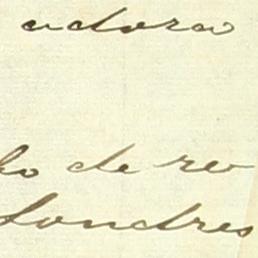 adora
de re
Londres